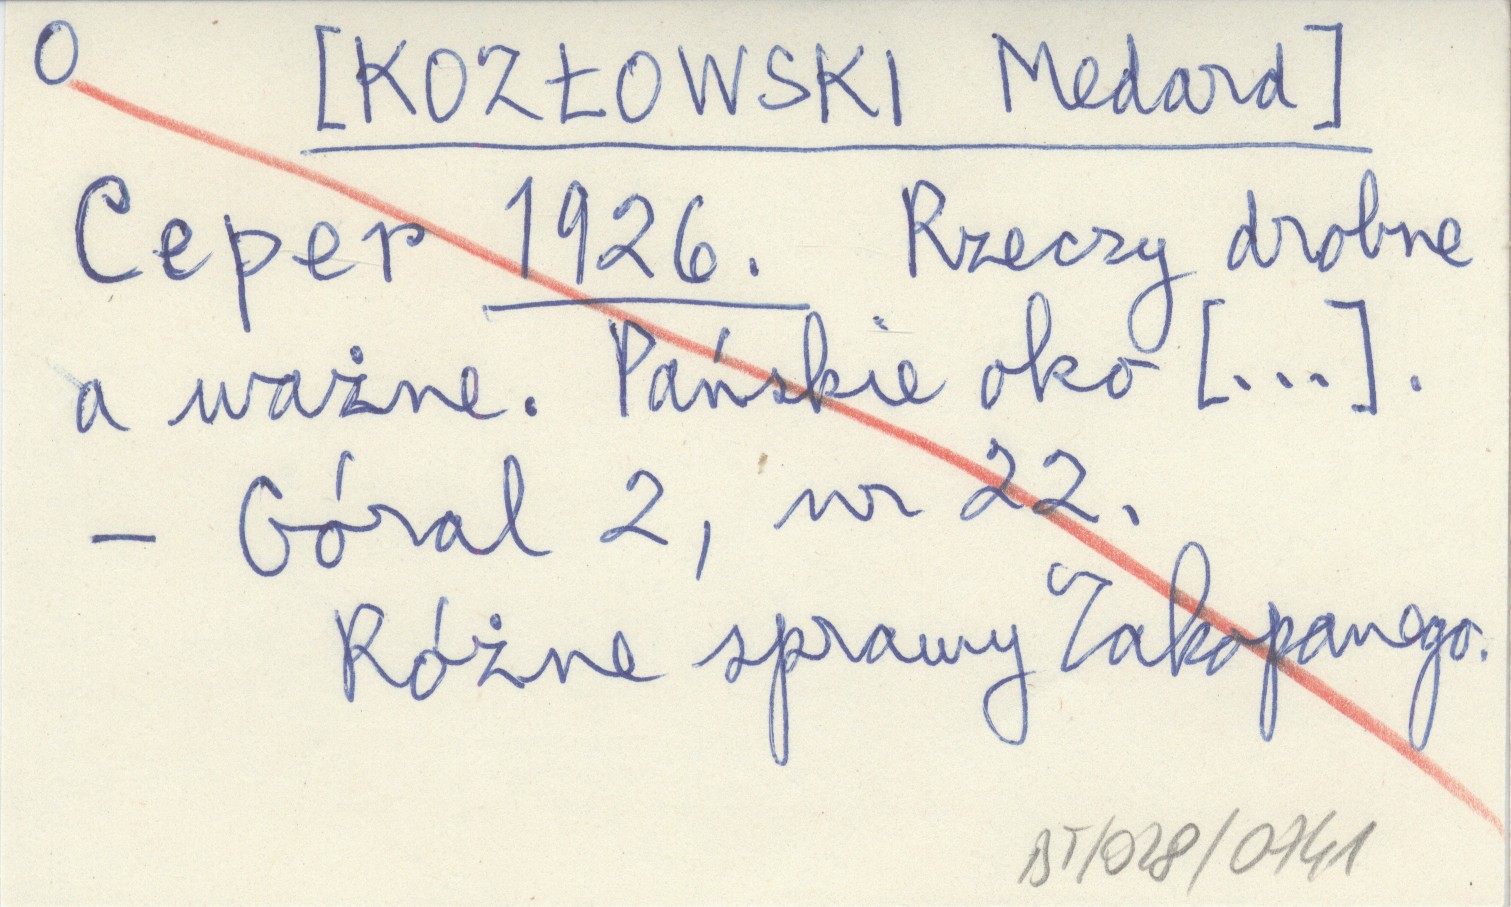 O [KOZŁOWSKI Medard]
Ceper 1926. Rzeczy drobne
a ważne. Pańskie oko [...].
— Góral 2, nr 22.
Różne sprawy Zakopanego.
BT/028/0741